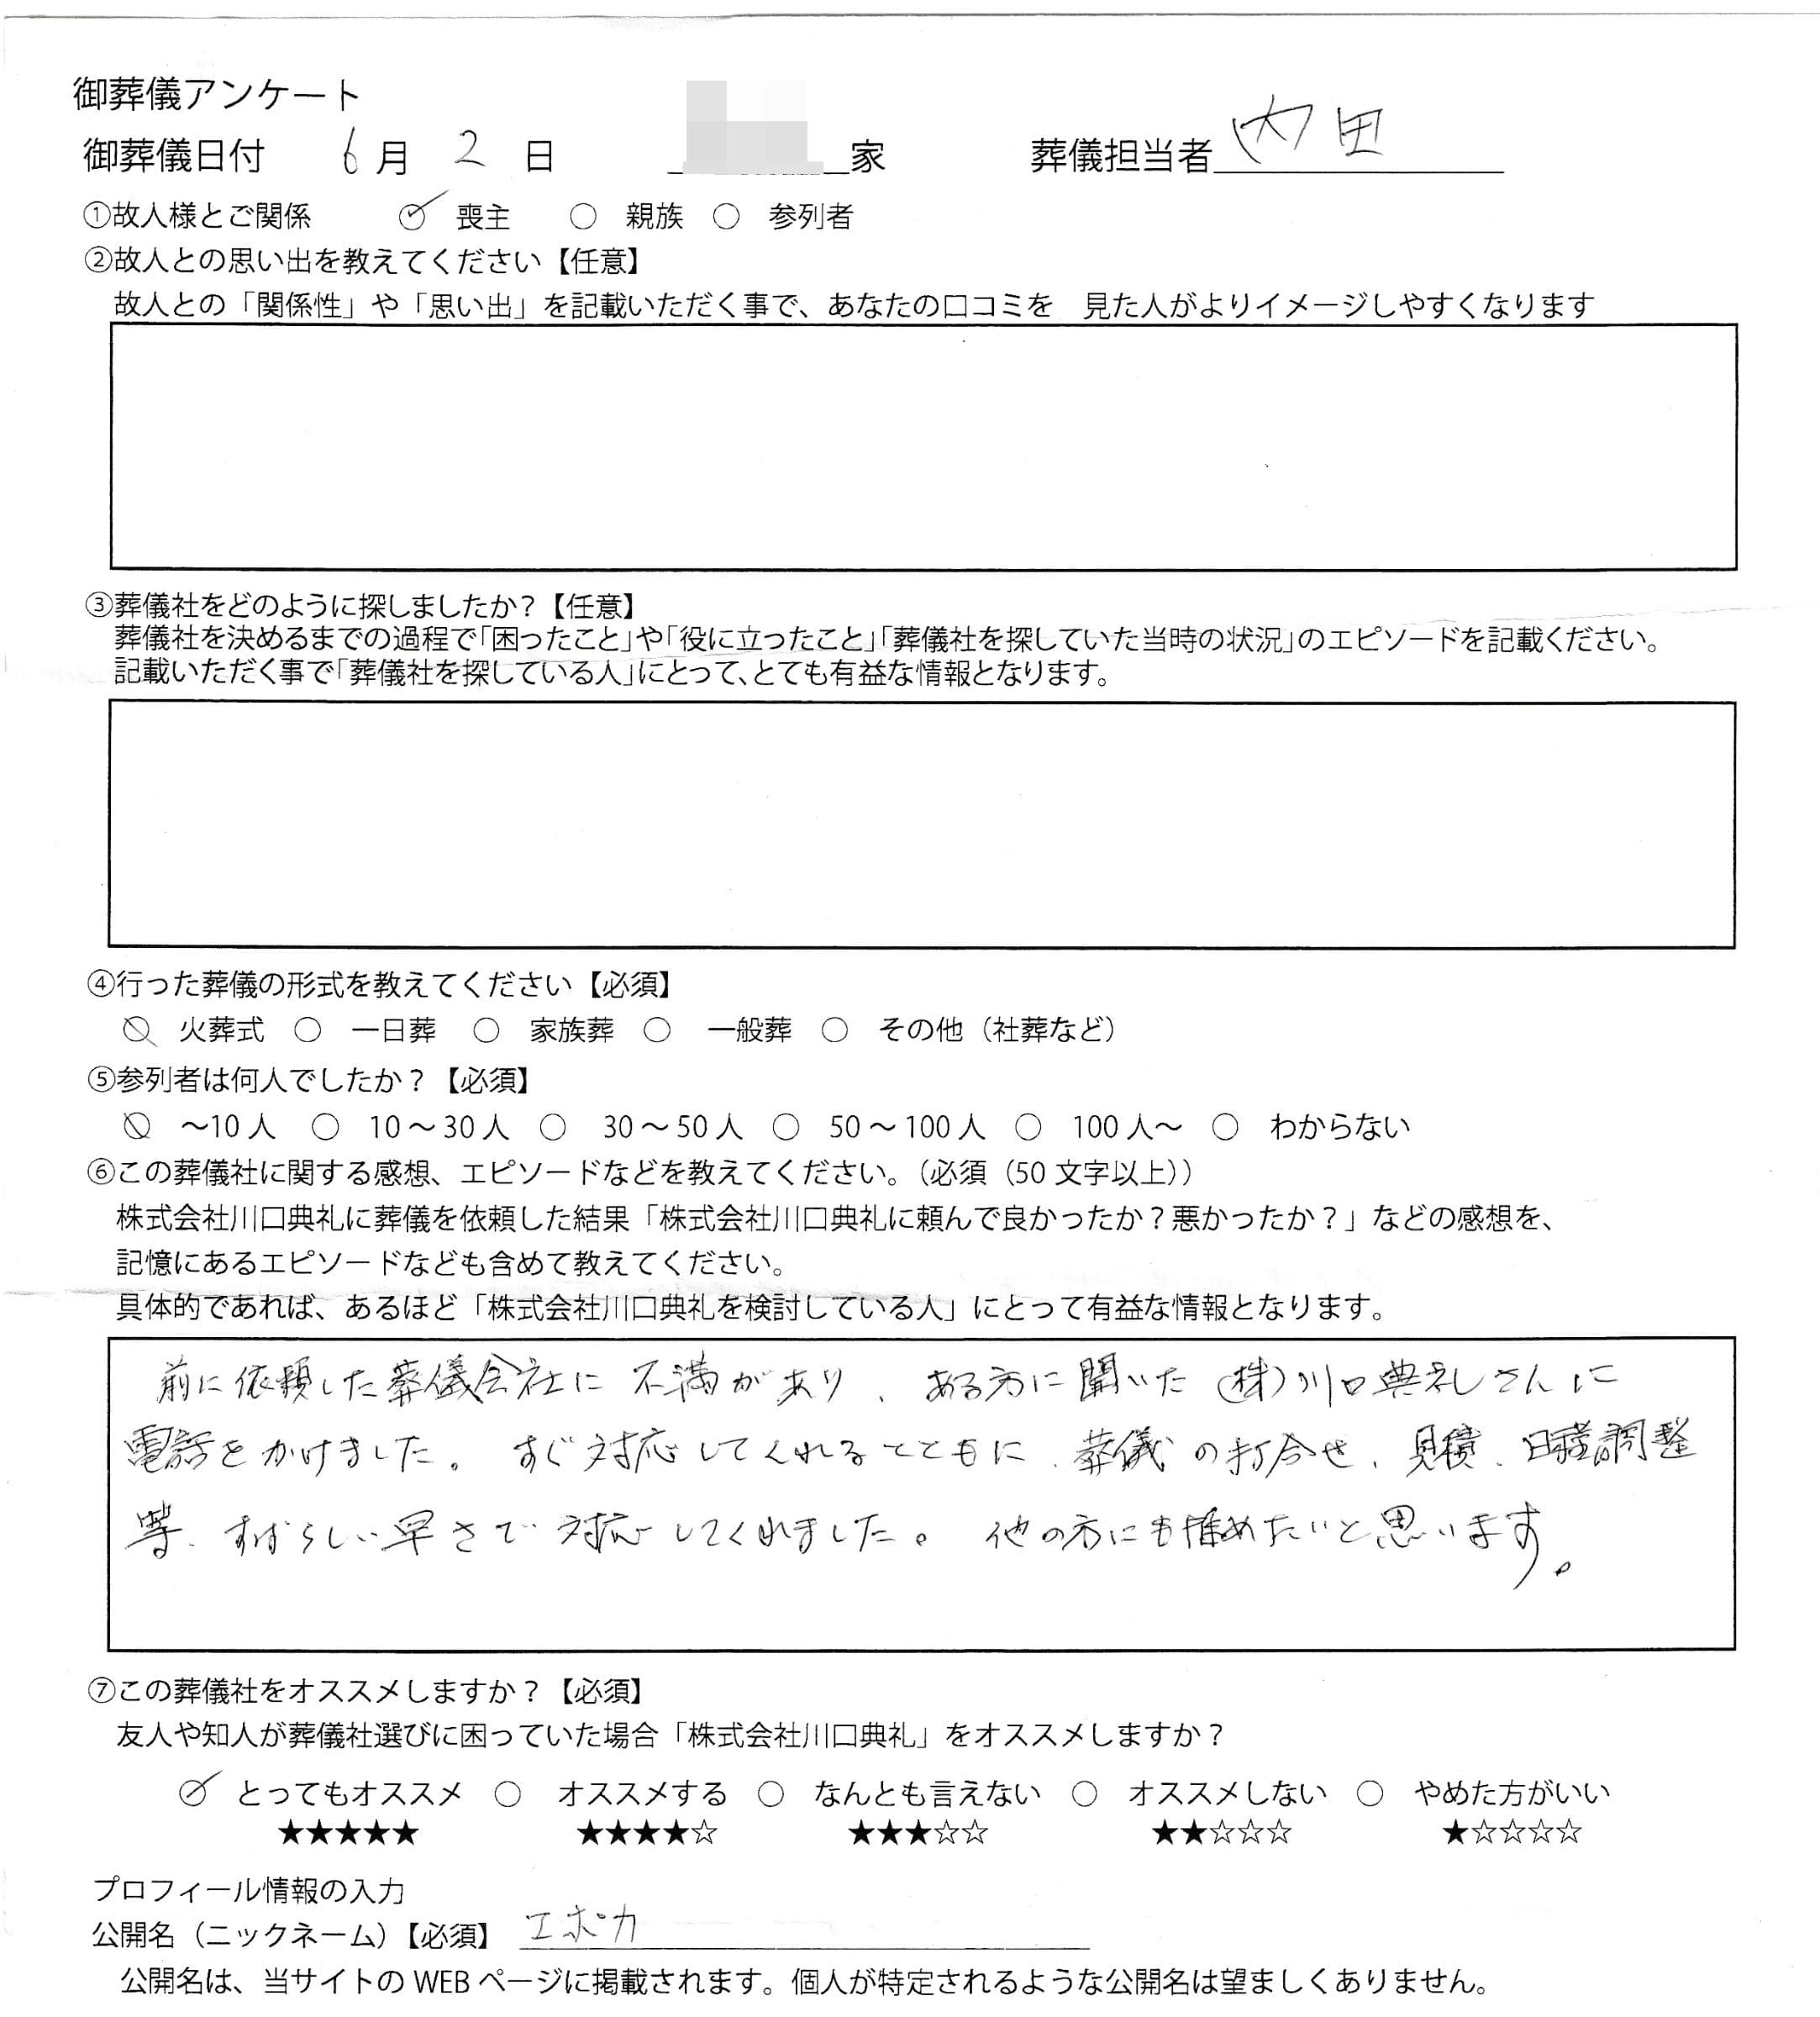 御葬儀アンケート
御葬儀日付 6月 2 日 家 葬儀担当者 内田
①故人様とご関係 ○ 喪主 ○ 親族 ○ 参列者
②故人との思い出を教えてください【任意】
故人との「関係性」や「思い出」を記載いただく事で、あなたの口コミを 見た人がよりイメージしやすくなります
③葬儀社をどのように探しましたか？【任意】
葬儀社を決めるまでの過程で「困ったこと」や「役に立ったこと」「葬儀社を探していた当時の状況」のエピソードを記載ください。
記載いただく事で「葬儀社を探している人」にとって、とても有益な情報となります。
④行った葬儀の形式を教えてください【必須】
○ 火葬式 ○ 一日葬 ○ 家族葬 ○ 一般葬 ○ その他（社葬など）
⑤参列者は何人でしたか？【必須】
○ ～10人 ○ 10～30人 ○ 30～50人 ○ 50～100人 ○ 100人～ ○ わからない
⑥この葬儀社に関する感想、エピソードなどを教えてください。（必須（50文字以上））
株式会社川口典礼に葬儀を依頼した結果「株式会社川口典礼に頼んで良かったか？悪かったか？」などの感想を、
記憶にあるエピソードなども含めて教えてください。
具体的であれば、あるほど「株式会社川口典礼を検討している人」にとって有益な情報となります。
前に依頼した葬儀会社に不満があり、ある方に聞いた（株）川口典礼さんに
電話をかけました。すぐ対応してくれるとともに、葬儀の打合せ、見積、日程調整
等、すばらしい早さで対応してくれました。他の方にも推めたいと思います。
⑦この葬儀社をオススメしますか？【必須】
友人や知人が葬儀社選びに困っていた場合「株式会社川口典礼」をオススメしますか？
○ とってもオススメ ○ オススメする ○ なんとも言えない ○ オススメしない ○ やめた方がいい
★★★★★ ★★★★☆ ★★★☆☆ ★★☆☆☆ ★☆☆☆☆
プロフィール情報の入力
公開名（ニックネーム）【必須】 エポカ
公開名は、当サイトのWEBページに掲載されます。個人が特定されるような公開名は望ましくありません。